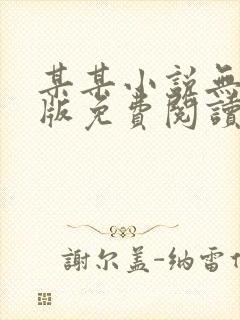 某某小説無
版免費閱讀
謝尔盖-纳雷